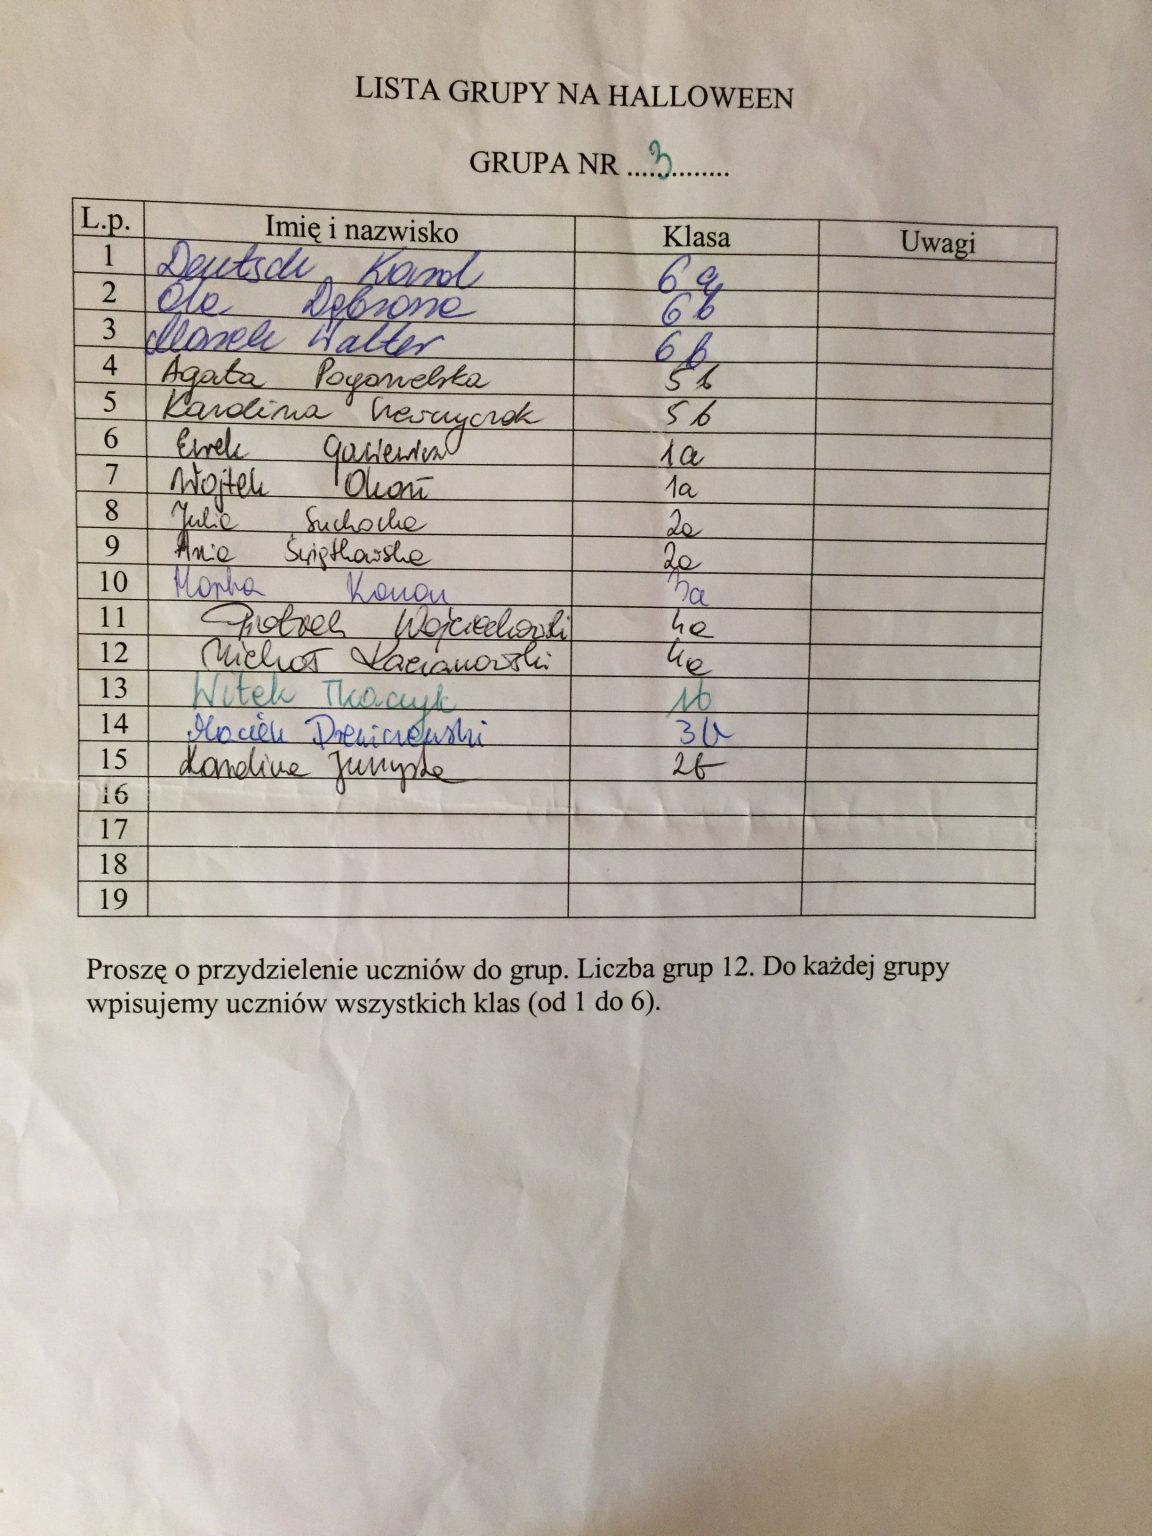 LISTA GRUPY NA HALLOWEEN
GRUPA NR ....3..........
L.p. Imię i nazwisko Klasa Uwagi
1 Deutsch Karol 6a
2 Ola Dąbrowa 6b
3 Marek Walter 6b
4 Agata Pogorzelska 5b
5 Karolina 5b
6 1a
7 Wojtek Okoń 1a
8 Julia Suchocka 2a
9 Ania Świątkowska 2a
10 3a
11 Wojciechowski 4a
12 Michał Kacianowski 4a
13 Witek Tkaczyk 1b
14 Maciek 3b
15 Karolina 2b
16
17
18
19
Proszę o przydzielenie uczniów do grup. Liczba grup 12. Do każdej grupy
wpisujemy uczniów wszystkich klas (od 1 do 6).